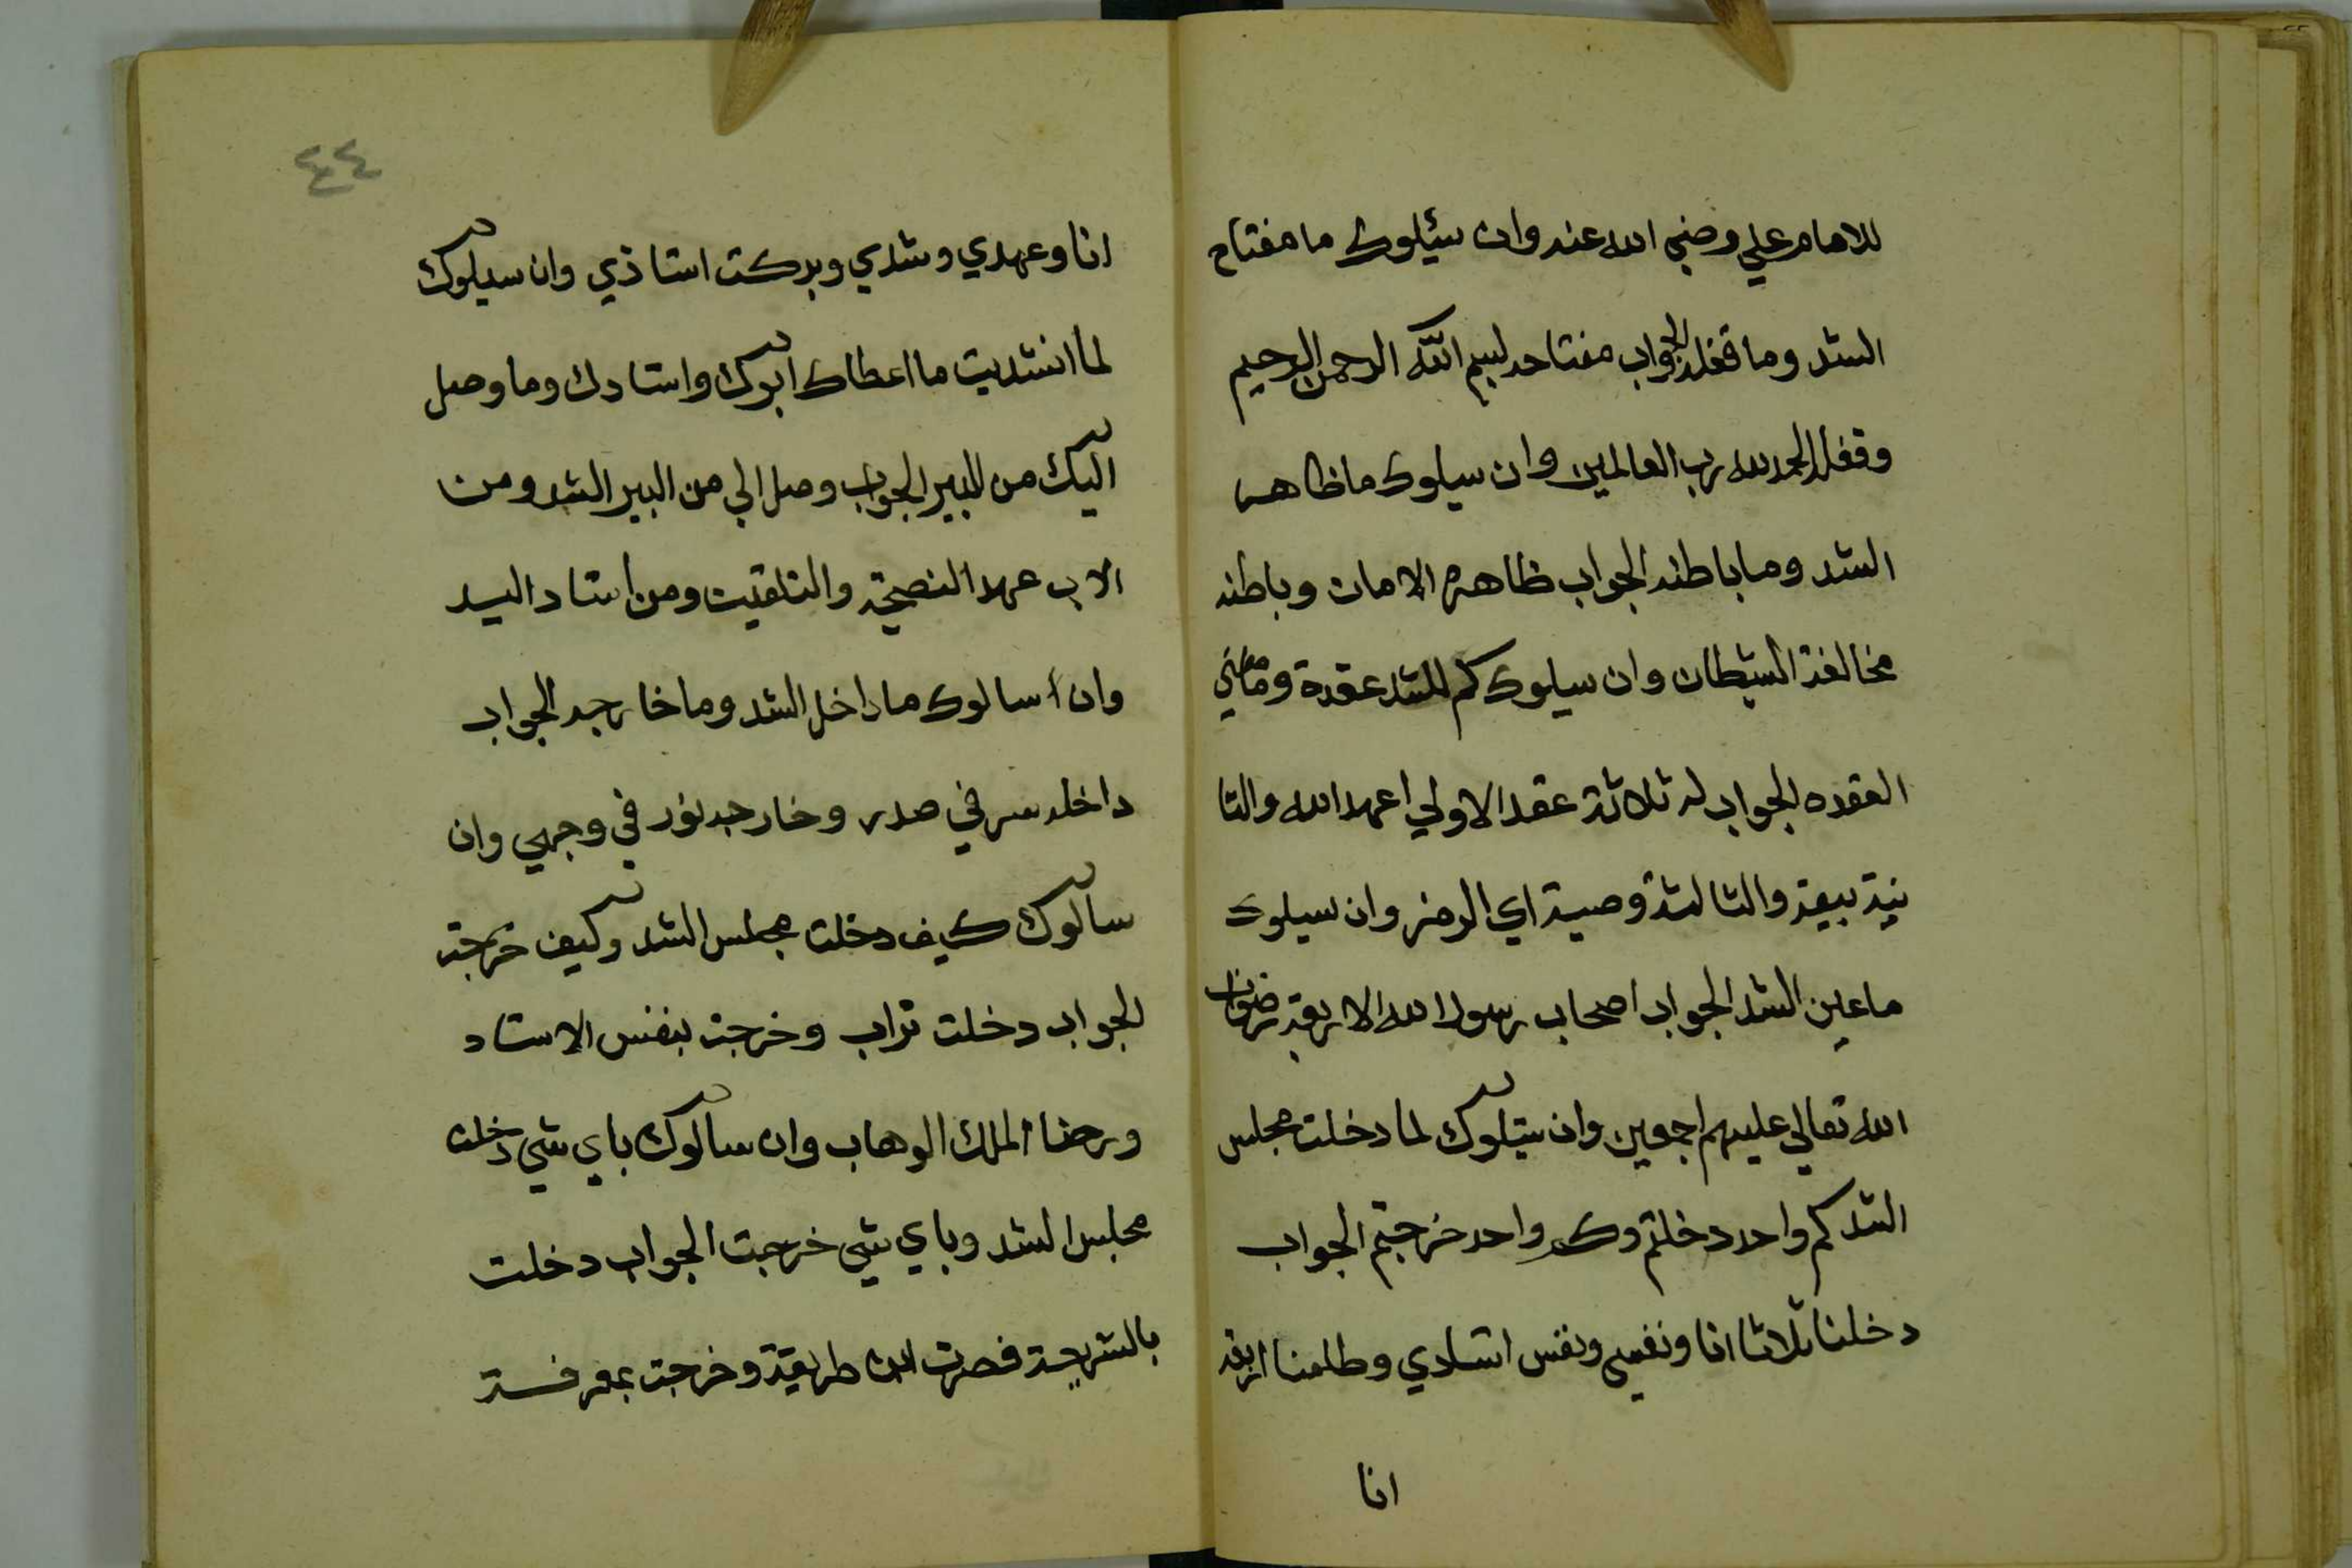 للامام علي رضي الله عنه وان سئلوك ما مفتاح
الشد وما قفله الجواب مفتاحه بسم الله الرحمن الرحيم
وقفله الحمد لله رب العالمين وان سيلوك ما ظاهر
الشد وما باطنه الجواب ظاهره الامان وباطنه
مخالفة الشيطان وان سيلوك كم للشد عقدة وما معني
العقده الجواب له ثلاثة عقد الاولي اعهد الله والثا
نية بيعة والثالثة وصية اي الرمز وان سيلوك
ما عين الشد الجواب اصحاب رسول الله الاربعة رضوان
الله تعالي عليهم اجمعين وان سيلوك لما دخلت مجلس
الشد كم واحد دخلتم وكم واحد خرجتم الجواب
دخلنا ثلاثا انا ونفسي ونفس استادي وطلعنا اربعة
انا
٤٤
انا وعهدي وشدي وبركت استاذي وان سيلوك
لما انشديت ما اعطاك ابوك واستادك وما وصل
اليك من البير الجواب وصل الي من البير الشد ومن
الاب عهد النصيحة والتلقيت ومن أستاد اليد
وان أسالوك ما داخل الشد وما خارجه الجواب
داخله سر في صدر وخارجه نور في وجهي وان
سالوك كيف دخلت مجلس الشد وكيف خرجة
الجواب دخلت تراب وخرجة بنفس الاستاد
ورضا الملك الوهاب وان سالوك باي شي دخلت
مجلس الشد وباي شي خرجت الجواب دخلت
بالشريعة فصرت ابن طريقة وخرجة بمعرفة